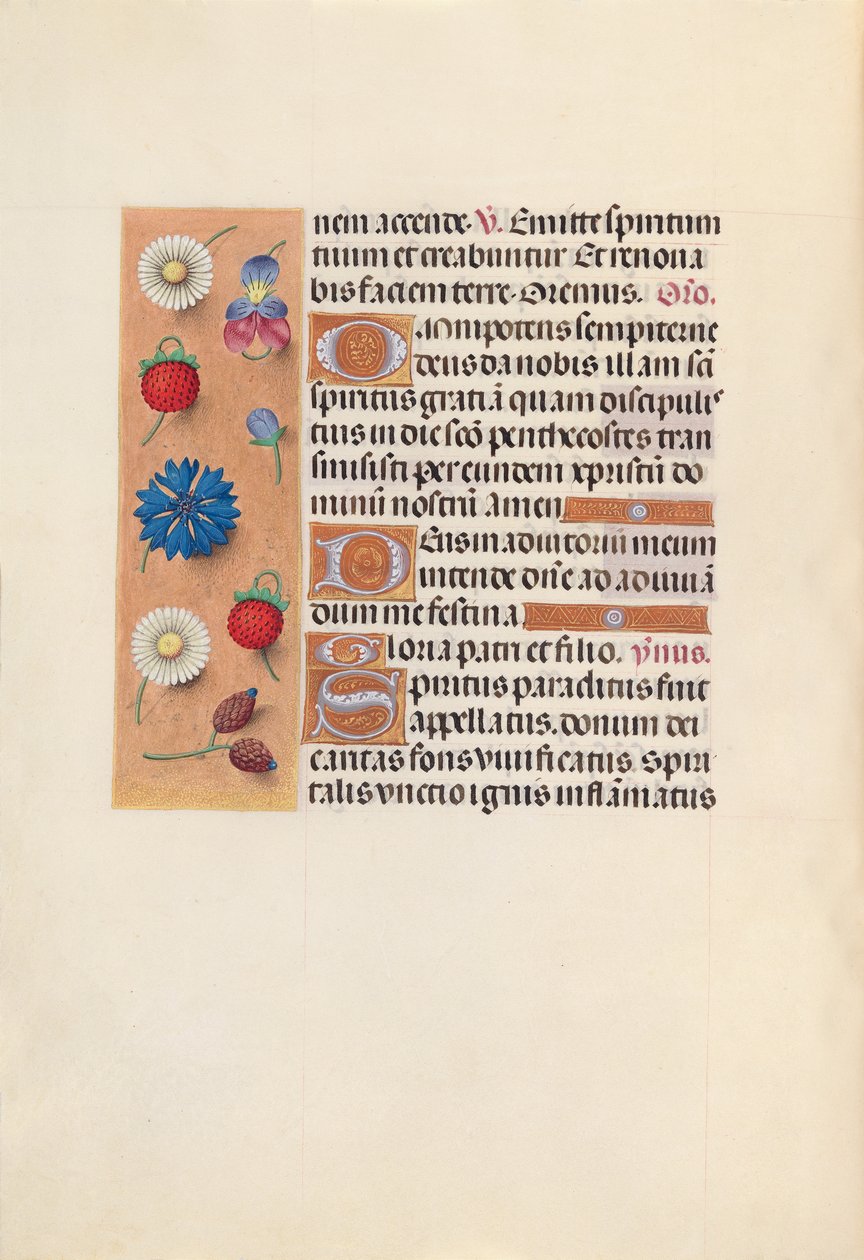 nem accende. V̇. Emitte spiritum
tuum et creabuntur Et renova
bis faciem terre. Oremus. Or̃o.
Omnipotens sempiterne
deus da nobis illam sc̃i
spiritus gratiã quam discipulis
tuis in die sc̃o penthecostes tran
smisisti per eundem xpristũ do
minũ nostrũ Amen
Deus in adiutoriũ meum
intende dñe ad adiuuã
dum me festina
Gloria patri et filio. ẏmus.
Spiritus paraclitus fuit
appellatus. donum dei
caritas fons viuificatus. Spiri
talis vnctio ignis inflãmatus